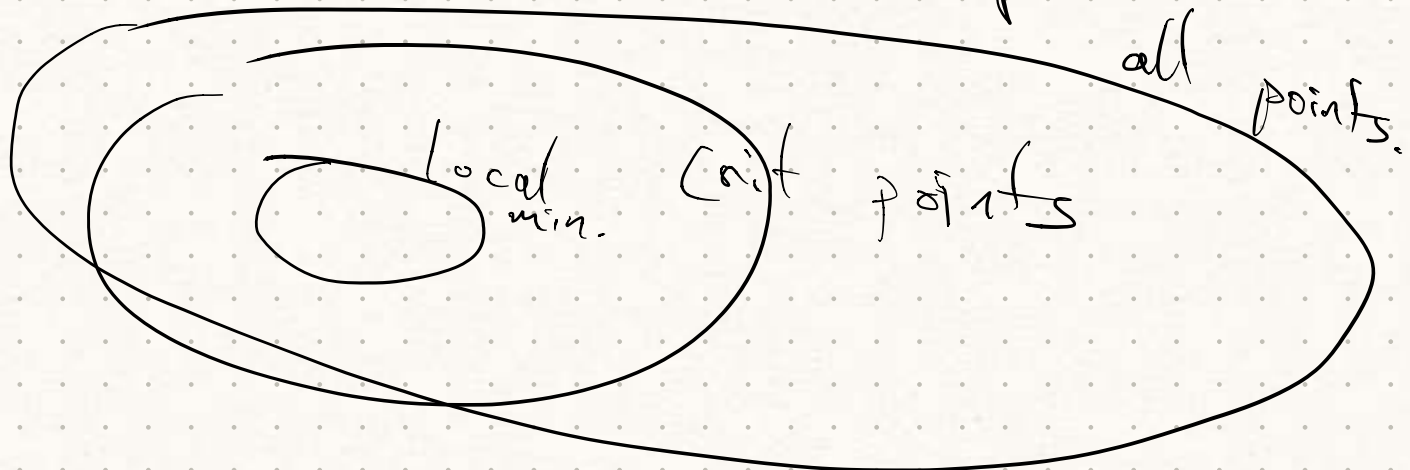 all points.
local min.
Crit points